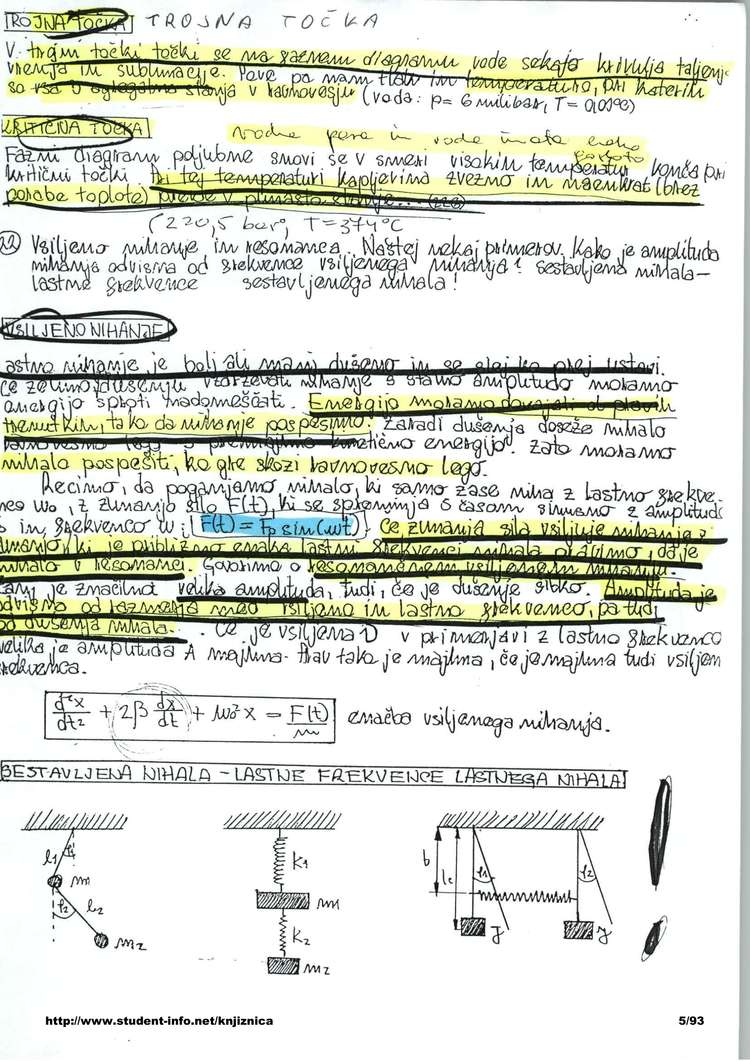 TROJNA TOČKA TROJNA TOČKA
V trojni točki točki se na faznem diagramu vode sekajo krivulja taljenja
vrenja in sublimacije. Pove pa nam tlak in temperaturo, pri katerih
so vsa agregatna stanja v ravnovesju (voda: p= 6 milibar, T= 0,01°C)
KRITIČNA TOČKA vodna para in voda imata enako
gostoto
Fazni diagram poljubne snovi se v smeri visokih temperatur konča pri
kritični točki Pri tej temperaturi kapljevina zvezno in naenkrat (brez
porabe toplote) preide v plinasto stanje...
(220,5 bar, T=374°C
Vsiljeno nihanje in resonanca. Naštej nekaj primerov. Kako je amplituda
nihanja odvisna od frekvence vsiljenega nihanja! sestavljena nihala-
lastne frekvence sestavljenega nihala!
VSILJENO NIHANJE
astno nihanje je bolj ali manj dušeno in se slej ko prej ustavi.
Če želimo dušenju vzdrževati nihanje s stalno amplitudo moramo
energijo sproti nadomeščati. Energijo moramo dovajati ob pravih
trenutkih, tako da nihanje pospešimo. Zaradi dušenja doseže nihalo
ravnovesno lego s premajhno kinetično energijo. Zato moramo
nihalo pospešiti, ko gre skozi ravnovesno lego.
Recimo, da poganjamo nihalo, ki samo zase niha z lastno frekve-
nco ω₀, z zunanjo silo F(t), ki se spreminja s časom sinusno z amplitudo
in frekvenco ω: F(t) = F₀ sin(ωt). Če zunanja sila vsiljuje nihanje z
ki je približno enaka lastni frekvenci nihala pravimo, da je
nihalo v resonanci. Govorimo o resonančnem vsiljenem nihanju.
je značilna velika amplituda, tudi, če je dušenje šibko. Amplituda je
odvisna od razmerja med vsiljeno in lastno frekvenco, pa tudi
od dušenja nihala. Če je vsiljena ν v primerjavi z lastno frekvenco
velika je amplituda A majhna. Prav tako je majhna, če je majhna tudi vsiljen
frekvenca.
d²x/dt² + 2β dx/dt + ω₀² x = F(t)/m enačba vsiljenega nihanja.
SESTAVLJENA NIHALA - LASTNE FREKVENCE LASTNEGA NIHALA
l₁ m₁ l₂ m₂
k₁ m₁ k₂ m₂
b J J
http://www.student-info.net/knjiznica 5/93